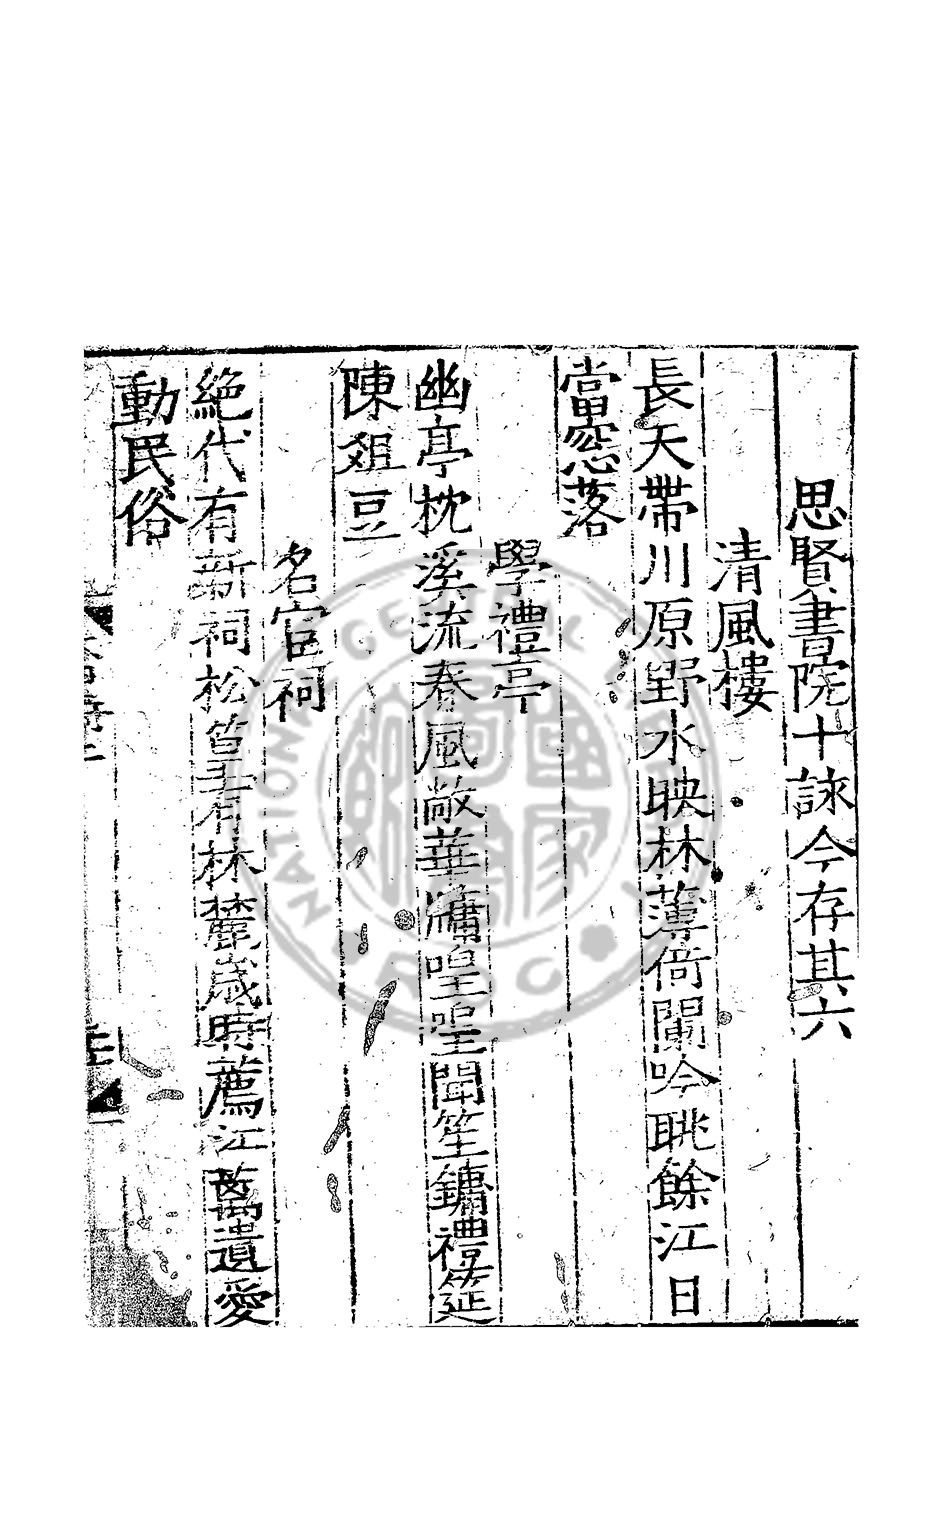 思賢書院十詠今存其六
清風樓
長天帶川原野水映林薄倚闌吟眺餘江日
當窓落
學禮亭
幽亭枕溪流春風敞華牗喤喤聞笙鏞禮筵
陳俎豆
名宦祠
絶代有新祠松篁有林麓歲時薦江蓠遺愛
動民俗